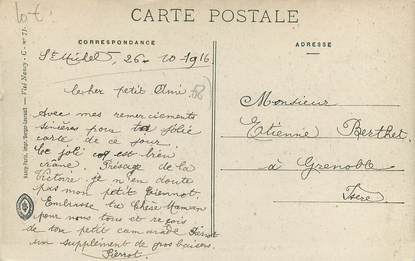 tot.
CARTE POSTALE
CORRESPONDANCE
ADRESSE
St Michel, 26-10-1916
Cher petit Ami
Avec mes remerciements
sincères pour ta jolie
carte de ce jour.
Le joli coq est bien
crâne. Présage de la
Victoire je n'en doute
pas mon petit Tiennot.
Embrasse ta Chère Maman
pour nous tous et reçois
de ton petit camarade Pierrot
un supplément de gros baisers.
Pierrot.
Monsieur
Etienne Berthet
à Grenoble
Isère
Nancy-Paris, Impr. Berger-Levrault - Visé Nancy - C - nº 71.